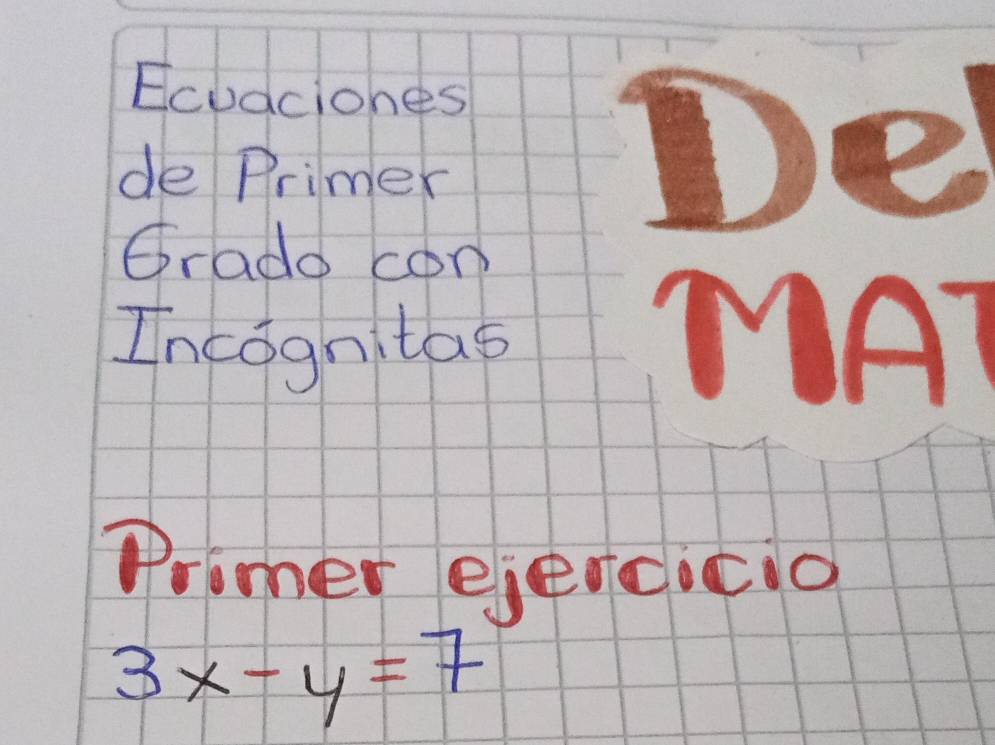 Ecuaciones
de Primer
Grado con
Incógnitas
De
MAT
Primer ejercicio
3x - y = 7